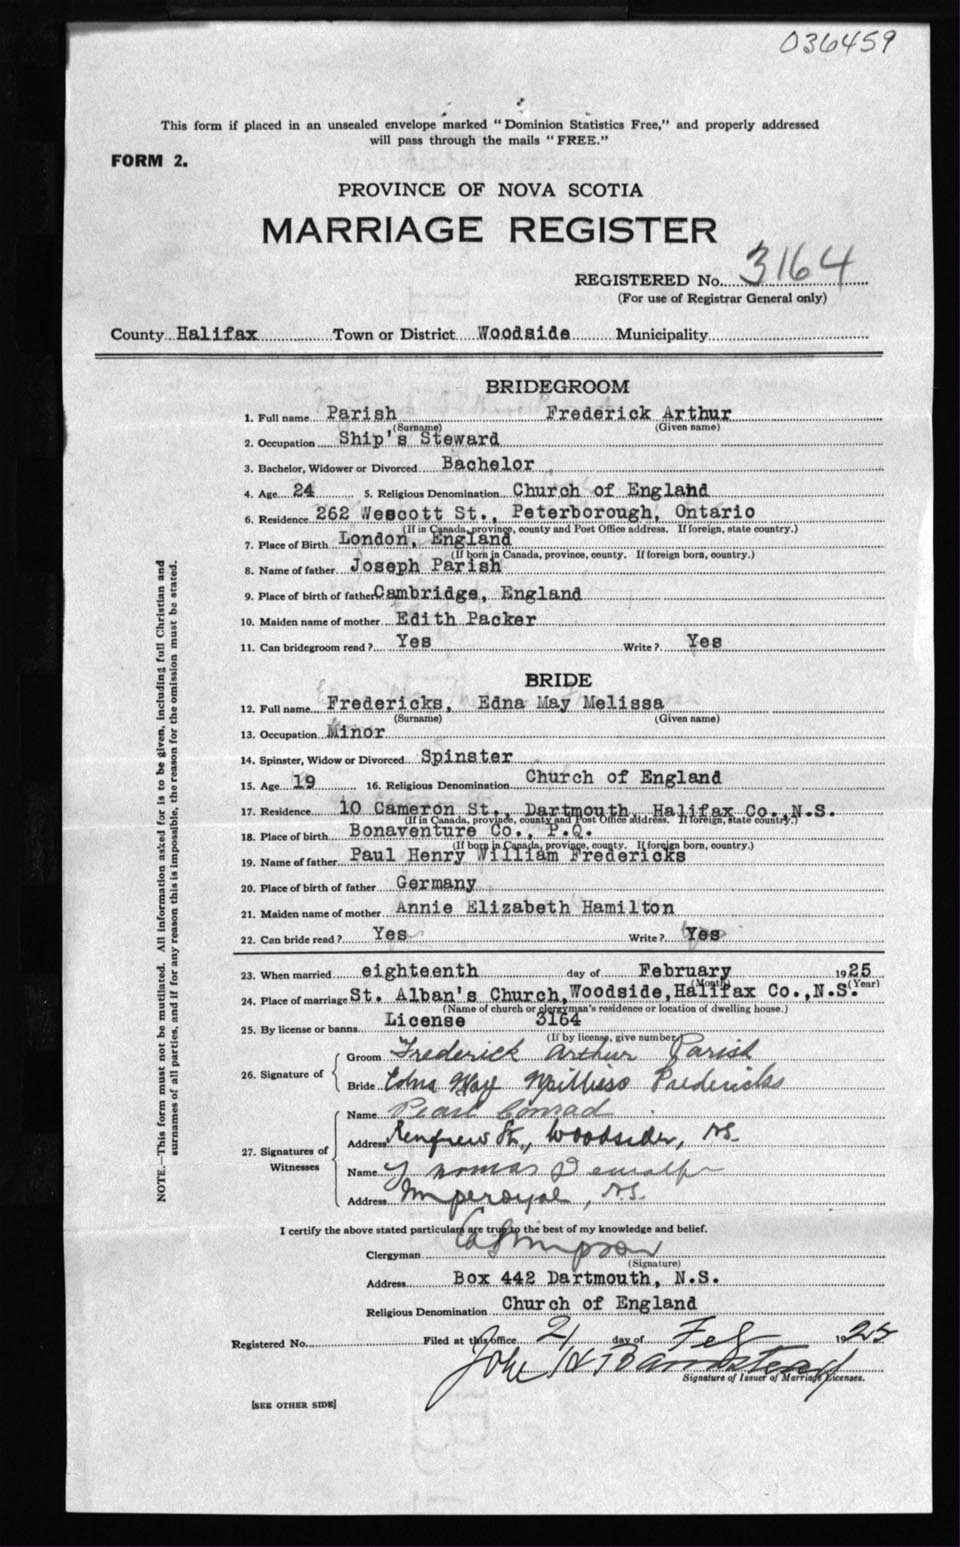 036459
This form if placed in an unsealed envelope marked "Dominion Statistics Free," and properly addressed
will pass through the mails "FREE."
FORM 2.
PROVINCE OF NOVA SCOTIA
MARRIAGE REGISTER
REGISTERED No. 3164
(For use of Registrar General only)
County Halifax Town or District Woodside Municipality
BRIDEGROOM
1. Full name Parish Frederick Arthur
(Surname) (Given name)
2. Occupation Ship's Steward
3. Bachelor, Widower or Divorced Bachelor
4. Age 24 5. Religious Denomination Church of England
6. Residence 262 Wescott St., Peterborough, Ontario
(If in Canada, province, county and Post Office address. If foreign, state country.)
7. Place of Birth London, England
(If born in Canada, province, county. If foreign born, country.)
8. Name of father Joseph Parish
9. Place of birth of father Cambridge, England
10. Maiden name of mother Edith Packer
11. Can bridegroom read? Yes Write? Yes
BRIDE
12. Full name Fredericks, Edna May Melissa
(Surname) (Given name)
13. Occupation Minor
14. Spinster, Widow or Divorced Spinster
15. Age 19 16. Religious Denomination Church of England
17. Residence 10 Cameron St., Dartmouth, Halifax Co., N.S.
(If in Canada, province, county and Post Office address. If foreign, state country.)
18. Place of birth Bonaventure Co., P.Q.
(If born in Canada, province, county. If foreign born, country.)
19. Name of father Paul Henry William Fredericks
20. Place of birth of father Germany
21. Maiden name of mother Annie Elizabeth Hamilton
22. Can bride read? Yes Write? Yes
23. When married eighteenth day of February 1925
(Month) (Year)
24. Place of marriage St. Alban's Church, Woodside, Halifax Co., N.S.
(Name of church or clergyman's residence or location of dwelling house.)
25. By license or banns License 3164
(If by license, give number)
26. Signature of
Groom Frederick Arthur Parish
Bride Edna May Millisa Fredericks
27. Signatures of Witnesses
Name Pearl Conrad
Address Renfrew St., Woodside, N.S.
Name Thomas
Address Imperoyal, N.S.
I certify the above stated particulars are true to the best of my knowledge and belief.
Clergyman Simpson
(Signature)
Address Box 442 Dartmouth, N.S.
Religious Denomination Church of England
Registered No. Filed at this office 21 day of Feb 1925
John
Signature of Issuer of Marriage Licenses.
[SEE OTHER SIDE]
NOTE.—This form must not be mutilated. All information asked for is to be given, including full Christian and
surnames of all parties, and if for any reason this is impossible, the reason for the omission must be stated.